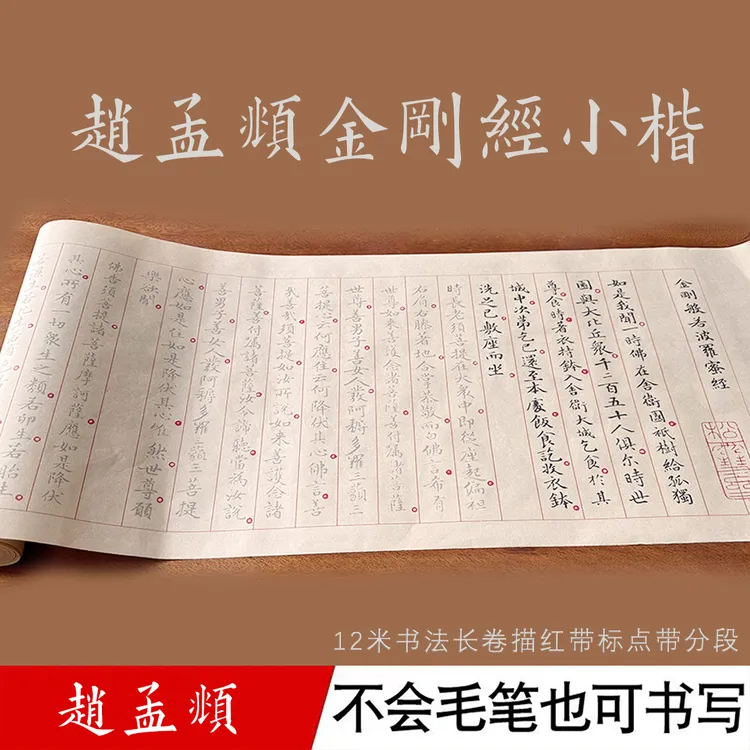 趙孟頫金剛經小楷
金剛般若波羅蜜經
如是我聞一時佛在舍衛國祇樹給孤獨
園與大比丘衆千二百五十人俱尔時世
尊食時著衣持鉢入舍衛大城乞食於其
城中次第乞已還至本處飯食訖收衣鉢
洗足已敷座而坐
時長老須菩提在大衆中即從座起偏袒
右肩右膝著地合掌恭敬而白佛言希有
世尊如来善護念諸菩薩善付嘱諸菩薩
世尊善男子善女人發阿耨多羅三藐三
菩提心云何應住云何降伏其心佛言善
哉善哉須菩提如汝所說如来善護念諸
菩薩善付嘱諸菩薩汝今諦聽當為汝說
善男子善女人發阿耨多羅三藐三菩提
心應如是住如是降伏其心唯然世尊願
樂欲聞
佛告須菩提諸菩薩摩訶薩應如是降伏
其心所有一切衆生之類若卵生若胎生
12米书法长卷描红带标点带分段
趙孟頫
不会毛笔也可书写